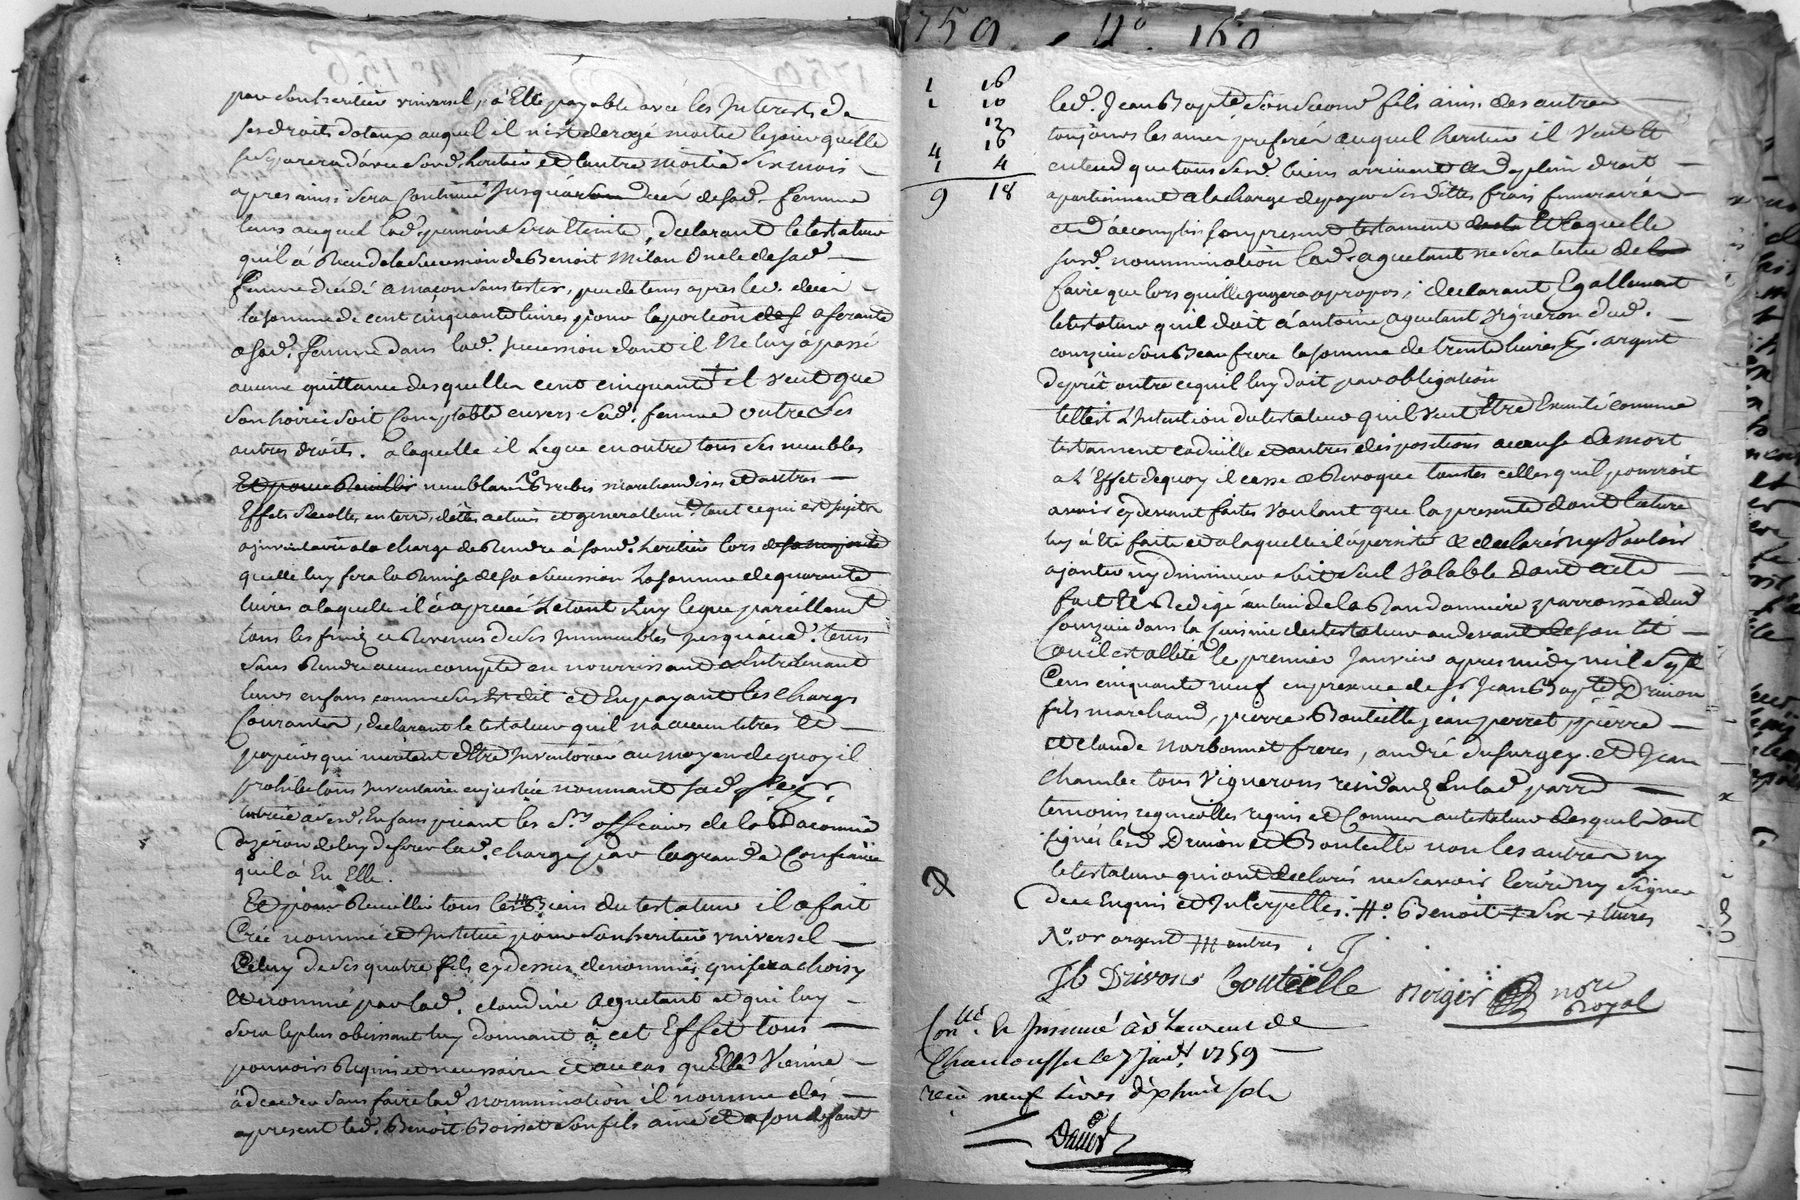 par son heritier universel, à Elle payable avec les Interests de
ses droits dotaux auquel il n'est derogé moitié le jour quelle
se separera d'avec sond. heritier et l'autre moitié six mois
apres ainsi sera Continué Jusqu'au deces de sad. femme
tems auquel lad. pension sera Eteinte, declarant le testateur
qu'il à Reçu de la succession de Benoit Milan oncle de sad.
femme decedé a macon sans tester, peu de tems apres led. deces
la somme de cent cinquante livres pour la portion des aferante
a sad. femme dans lad. succession dont il Ne luy à passé
aucune quittance desquelles cent cinquante + il veut que
son hoirie soit Comptable envers sad. femme outre Ses
autres droits. a laquelle il Legue en outre tous ses meubles
Et pour Recuillir meublans Brebis marchandises et autres
Effets Recoltes en terre, dettes actives et generallemt. tout ce qui est sujet
a inventaire a la charge de Rendre à sond. heritier lors de sa majorité
quelle luy fera la Remise de sa succession La somme de quarante
livres a laquelle il à aprecié Letout Luy legue pareillemt.
tous les fruits et Revenus de ses Immeubles jusqu'aud. tems
sans Rendre aucun compte en nourrissant et Entretenant
leurs enfans comme sus Est dit et En payant les charges
Courantes, declarant le testateur qu'il n'a aucun titres et
papiers qui meritent d'Etre Inventoriés au moyen de quoy il
prohibe tous Inventaire en justice nommant sad. fe.
tutrice a send. Enfans priant les Srs. officiers de la
d'yzeron de luy deferer lad. charge par la grande Confiance
qu'il à En Elle.
Et pour Recuillir tous les Biens du testateur il a fait
Créé nommé et Institué pour son heritier universel
Celuy de ses quatre fils cy dessus denommés qui sera choisy
Et nommé par lad. claudine Aguetant et qui luy
sera le plus obeissant luy donnant à cet Effet tous
pouvoirs Requis et necessaires et au cas quElle Vienne
à deceder sans faire lad. nommination il nomme dés
apresent led. Benoit Boisset son fils ainé et a son defaut
759. N°. 160
1 16
1 10
12
4 16
1 4
9 18
led. Jean Bapte. son second fils ainsi des autres
toujours les ainés preferés auquel heritier il Veut Et
entend que tous sesd. biens arrivent et de plein droit
apartiennent a la charge de payer ses dettes frais funeraires
et d'accomplir son present testament Et laquelle
susd. nommination lad. aguetant ne sera tenue de la
faire que lors quelle jugera apropos; declarant Egallement
le testateur qu'il doit à antoine aguetant vigneron dud.
courzieu son Beau frere la somme de trente livres argent
de prêt outre ce qu'il luy doit par obligation
telle est l'Intention du testateur qu'il veut Etre Executé comme
testament codicille et autres dispositions a cause de mort
a l'Effet de quoy il casse et Revoque toutes celles qu'il pourroit
avoir cy devant faites voulant que la presente dont lecture
luy à Eté faite et a laquelle il a persisté et declaré n'y vouloir
ajouter ny diminuer soit seul Valable dont acte
fait Et Redigé au lieu de la Randonniere parroisse dud.
Courzieu dans la Cuisine du testateur au devant de son lit
où il est allité le premier Janvier apres midy mil Sept
Cens cinquante neuf en presence de Sr. Jean Bapte. Drivon
fils marchand, pierre Bouteille jean perret, pierre
et claude Narbonnet freres, andré dusurgey et Jean
chambe tous Vignerons residants En lad. parre.
temoins requis et Connus au testateur desquels ont
signés lesd. Drivon et Bouteille non les autres ny
le testateur qui ont declarés ne scavoir Ecrire ny Signer
De ce Enquis et Interpellés. Benoit + six + livres
N. or argent autres.
Jb Drivon Bouteille Berger nore
Royal
Conllé. et Insinué à St. Laurent de
Chamousset le 7 janr. 1759
reçu neuf livres dix huit sols
David